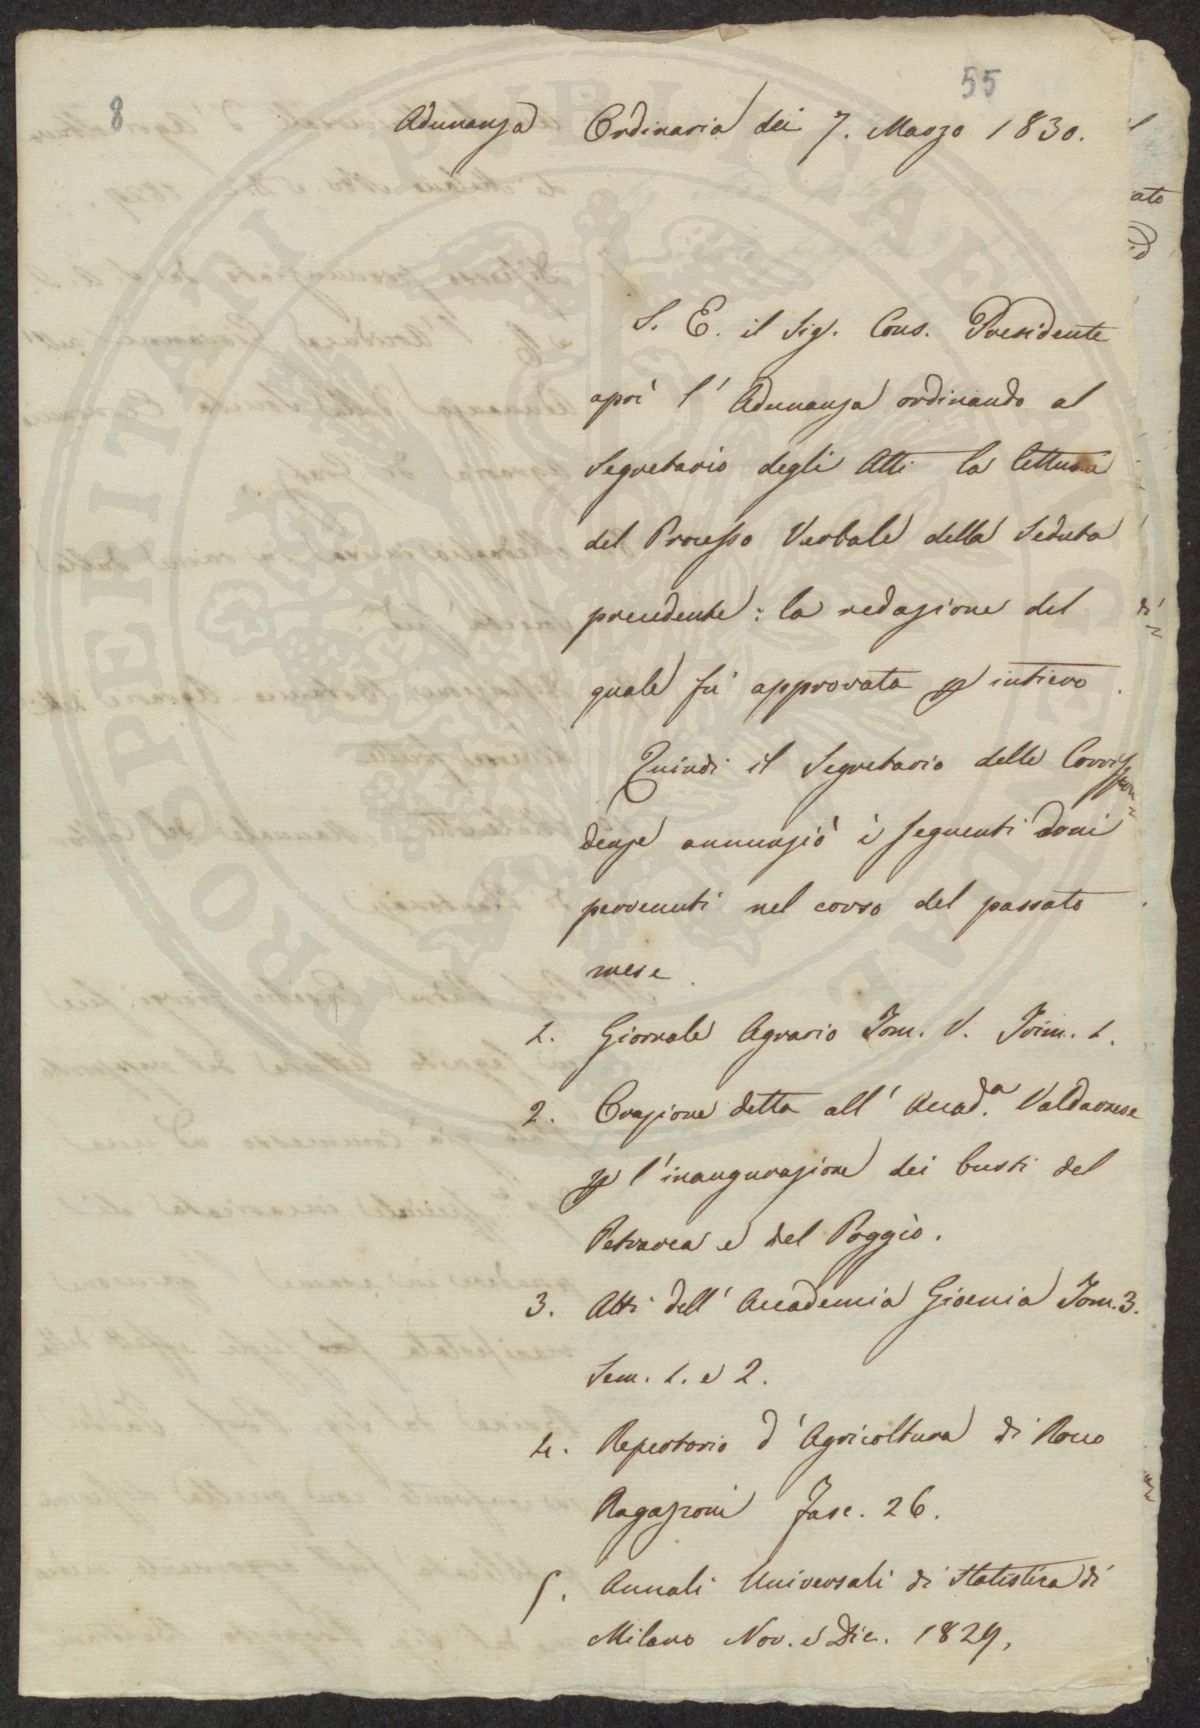 55
8
Adunanza Ordinaria dei 7. Marzo 1830.
S. E. il Sig. Cons. Presidente
aprì l' Adunanza ordinando al
Segretario degli Atti la lettura
del Processo Verbale della Seduta
precedente: la redazione del
quale fù approvata p intiero.
Quindi il Segretario delle Corrispon=
denze annunziò i seguenti doni
pervenuti nel corso del passato
mese
1. Giornale Agrario Tom. V. Trim. 1.
2. Orazione detta all' Accad.a Valdarnese
p l'inaugurazione dei busti del
Petrarca e del Poggio.
3. Atti dell' Accademia Gioenia Tom. 3.
Sem. 1. e 2.
4. Repertorio d'Agricoltura di Rocco
Ragazzoni Fasc. 26.
5. Annali Universali di Statistica di
Milano Nov. e Dic. 1829,
PROSPERITATI PUBLICAE AUGENDAE